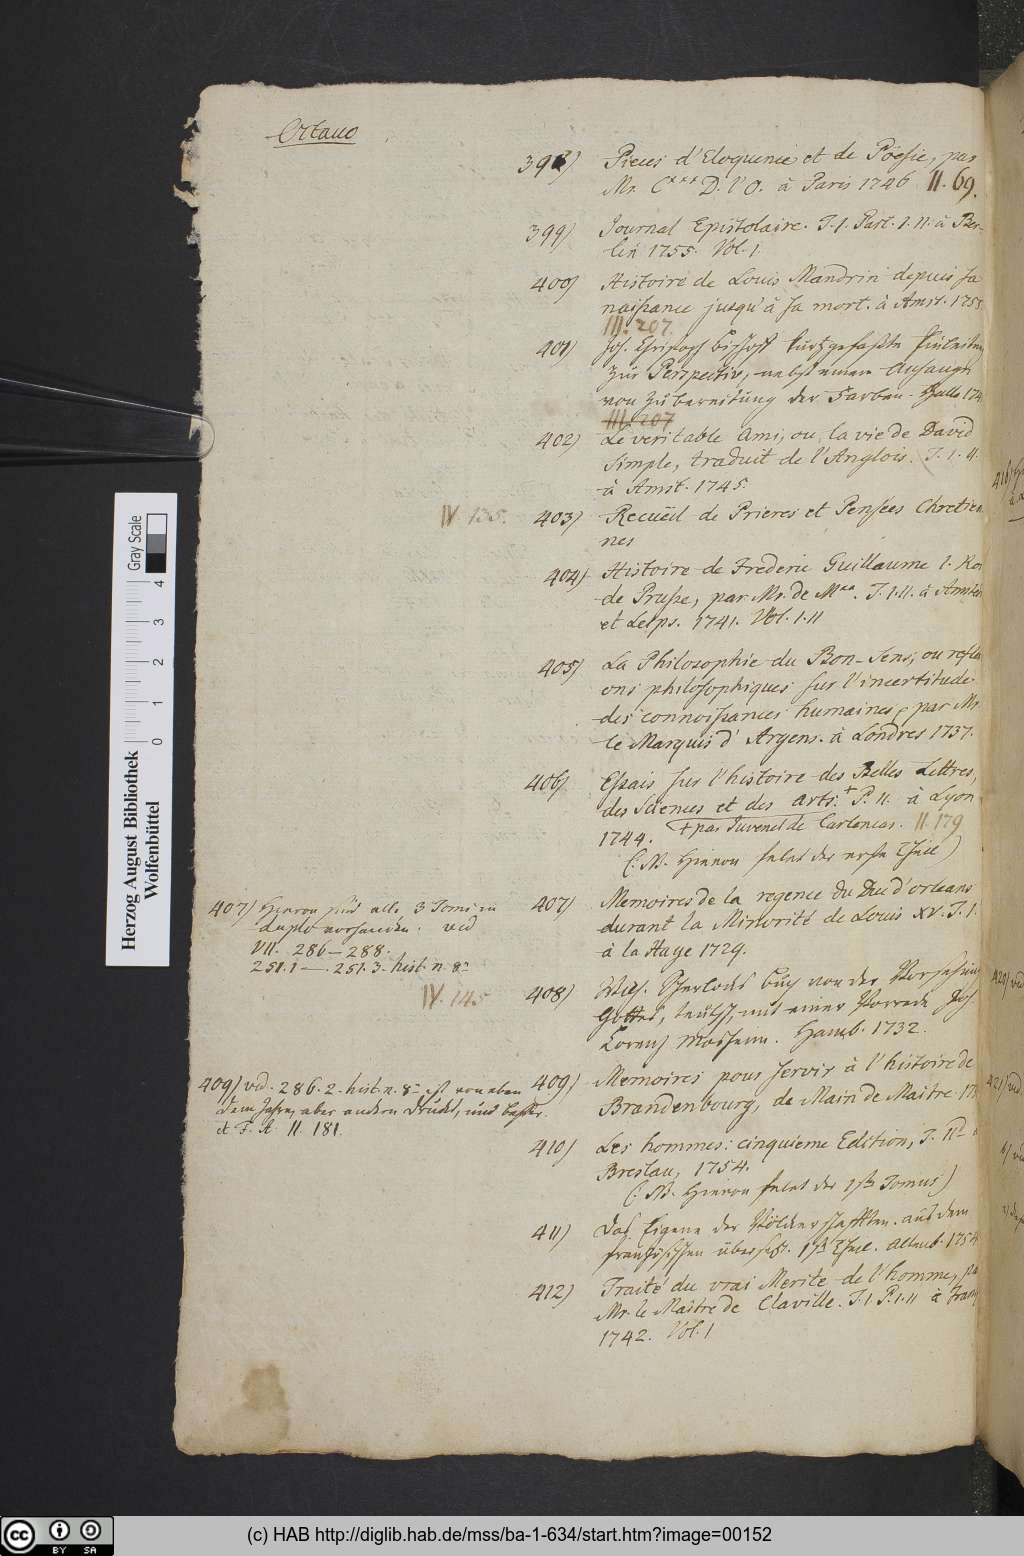 Octavo
398) Pieces d'Eloquence et de Poësie, par
Mr. C*** D. l'O. à Paris 1746 II. 69.
399) Journal Epistolaire. T. I. Part. I. II. à Ber-
lin 1755. Vol. I.
400) Histoire de Louis Mandrin depuis sa
naissance jusqu'à sa mort. à Amst. 1755
III. 207.
401) Joh. Christoph Bischoff kurtzgefaßte Einleitung
zur Perspectiv, nebst einem Anhange
von Zubereitung der Farben. Halle 174
III. 207
402) Le veritable Ami, ou la vie de David
Simple, traduit de l'Anglois. T. I. II.
à Amst. 1745.
IV. 135. 403) Recueil de Prieres et Pensées Chretien
nes
404) Histoire de Frederic Guillaume I. Roi
de Prusse, par Mr. de M**. T. I. II. à Amsterd
et Leips. 1741. Vol. I. II
405) La Philosophie du Bon-Sens, ou reflexi
ons philosophiques sur l'incertitude
des connoissances humaines, par Mr.
le Marquis d'Argens. à Londres 1737.
406) Essais sur l'histoire des Belles Lettres,
des Sciences et des Arts.+ P. II. à Lyon
1744. + par Juvenel de Carlencas. II. 179
(: NB. Hievon fehlet der erste Theil)
407) Memoires de la regence du Duc d'Orleans
durant la Minorité de Louis XV. T. I.
à la Haye 1729.
407) Hievon sind alle 3 Tomi in
duplo vorhanden. vid
VII. 286-288.
251.1 - 251.3. hist. n. 8º
IV. 145 408) Sherlocks Buch von der Vorsehung
Gottes, teutsch, mit einer Vorrede Joh
Lorenz Mosheim. Hamb. 1732.
409) Memoires pour servir à l'histoire de
Brandenbourg, de Main de Maitre. 17
409) vid. 286.2. hist. n. 8º ist von eben
dem Jahre, aber andern Drucks, und besser.
A. F. A. II. 181.
410) Les hommes: cinquieme Edition, T. IId à
Breslau, 1754.
(: NB. Hievon fehlet der 1ste Tomus)
411) Das Eigene der Völckerschafften. aus dem
französischen übersetzt. 1ster Theil. Altenb. 1754
412) Traité du vrai Merite de l'homme, par
Mr. le Maitre de Claville. T. I P. I. II à Franc
1742. Vol. I
Herzog August Bibliothek
Wolfenbüttel
0 1 2 3 4
Gray Scale
cc BY SA
(c) HAB http://diglib.hab.de/mss/ba-1-634/start.htm?image=00152